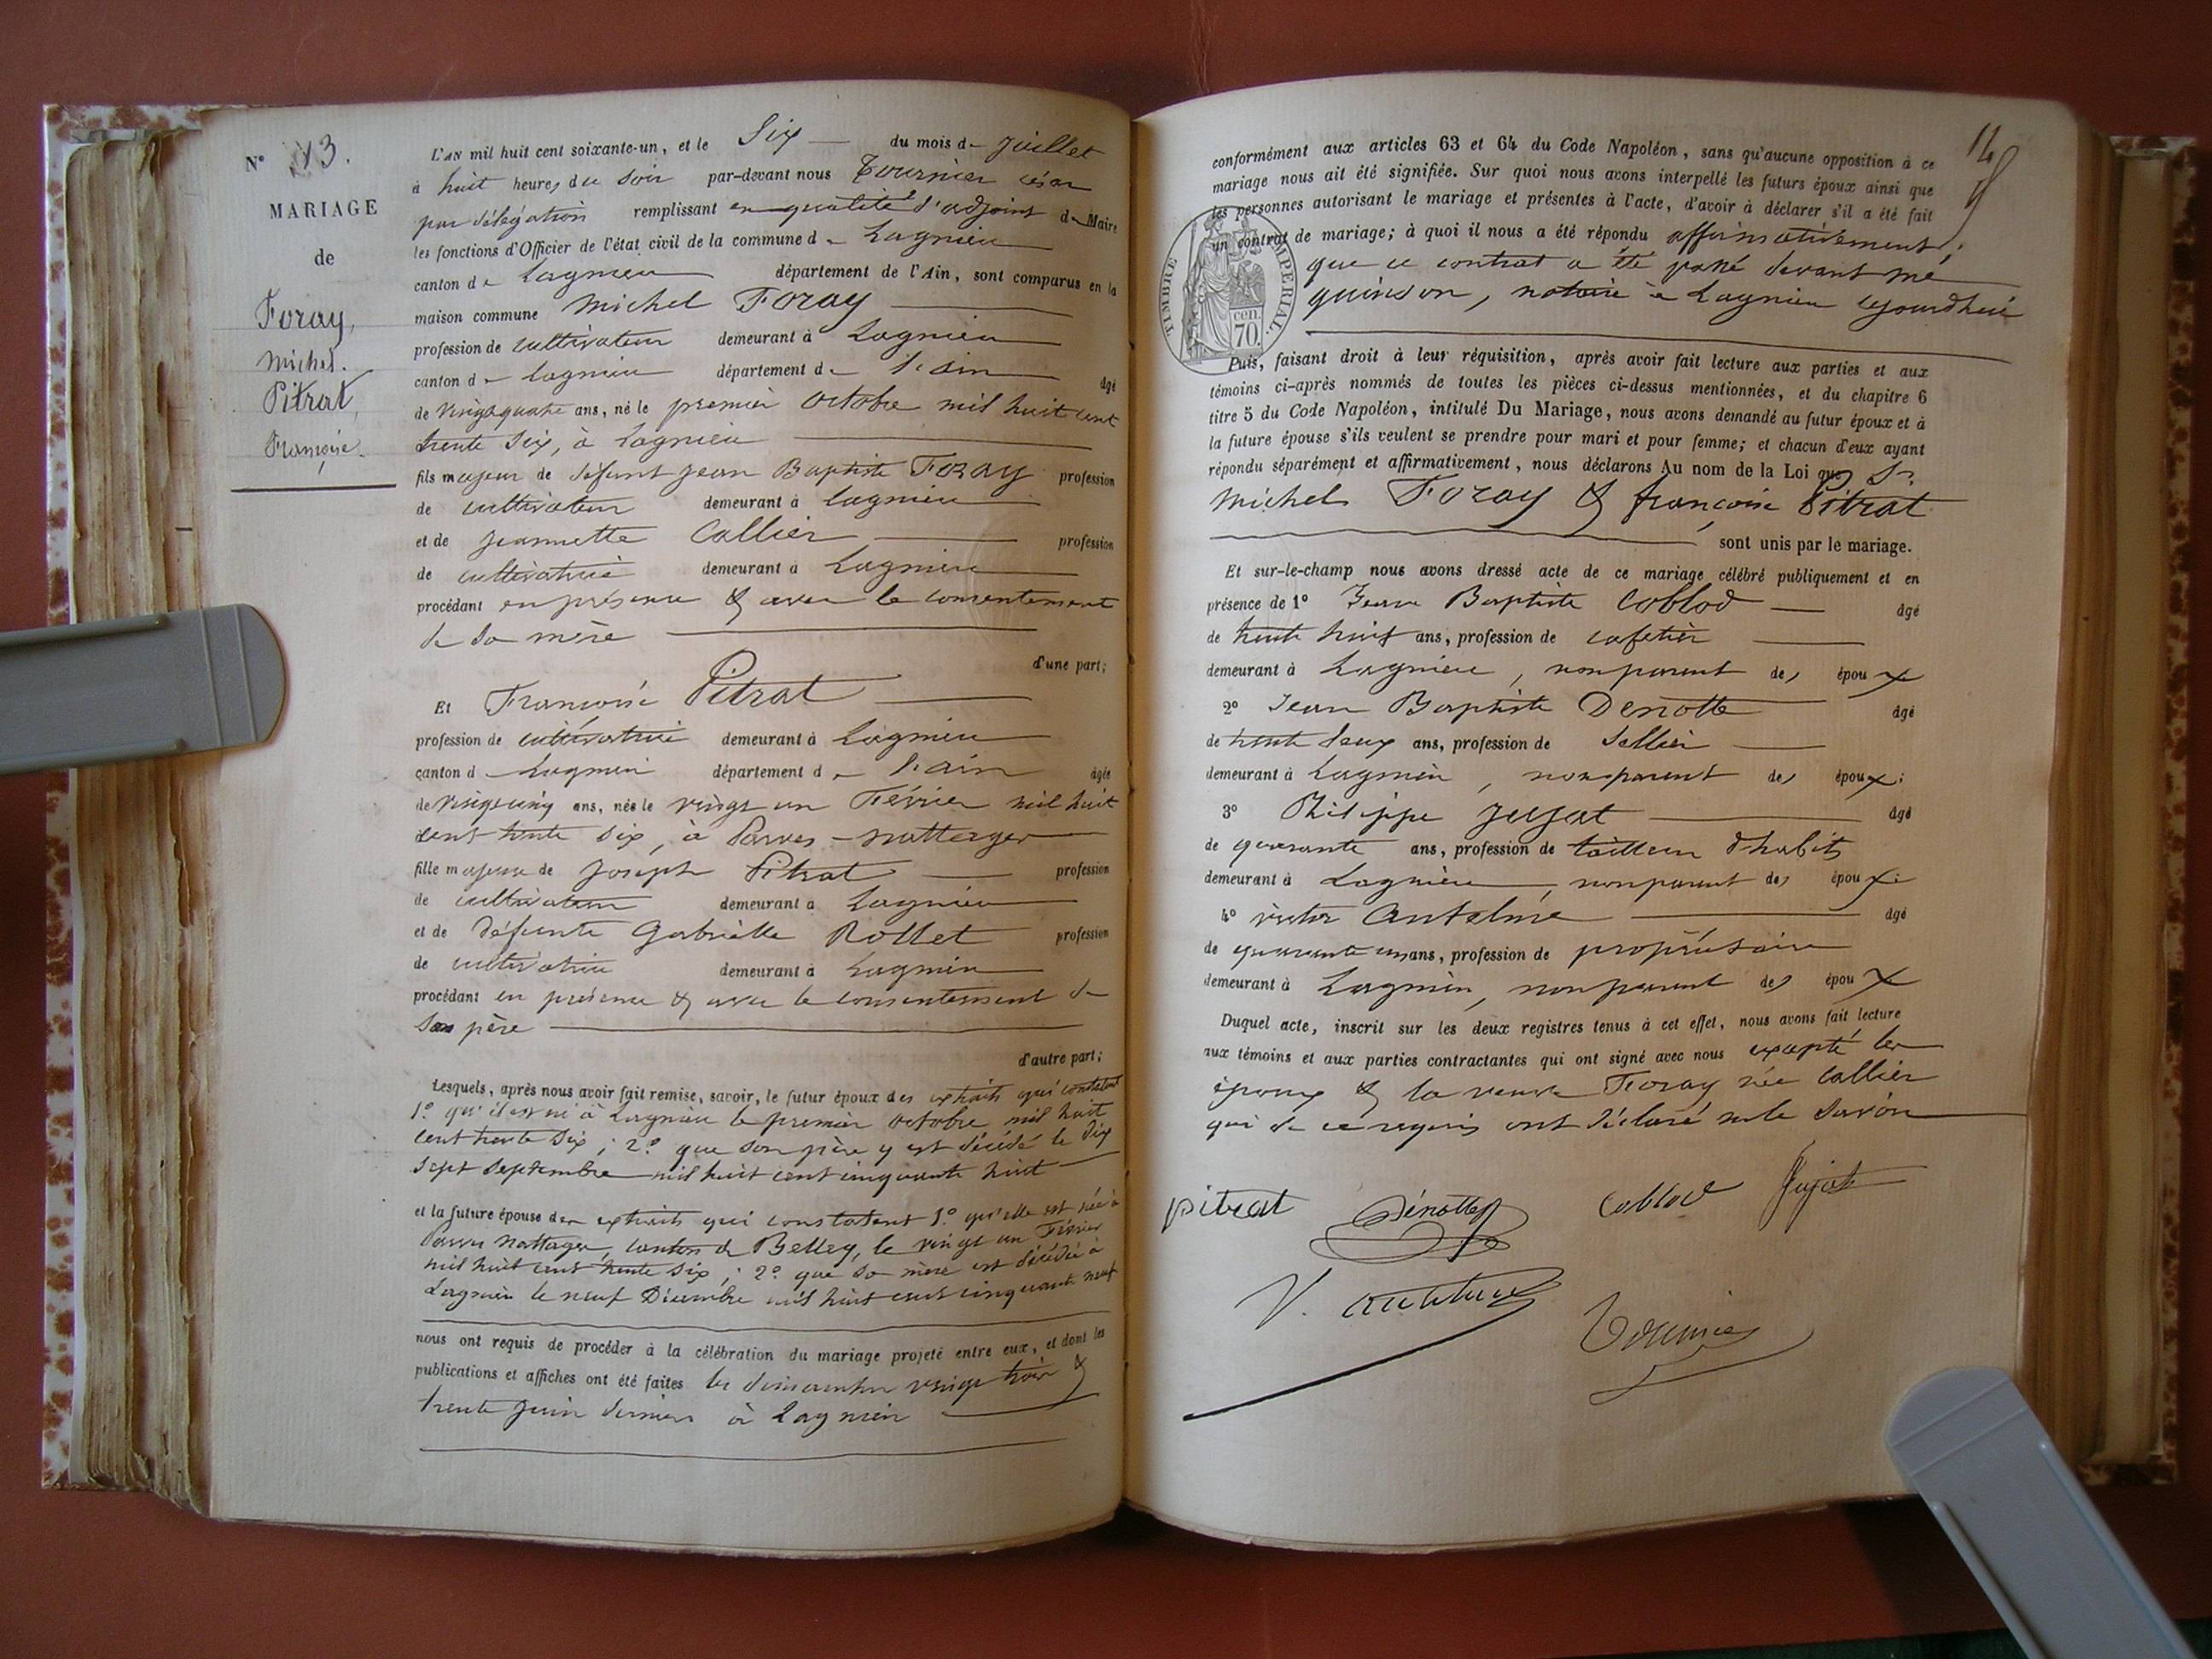 N° 13.
MARIAGE
de
Foray,
Michel.
Pitrat,
Françoise.
L'AN mil huit cent soixante-un, et le Six du mois de Juillet
à huit heures du soir par-devant nous Tournier césar
par délégation remplissant en qualité d'adjoint de Maire
les fonctions d'Officier de l'état civil de la commune de Lagnieu
canton de Lagnieu département de l'Ain, sont comparus en la
maison commune Michel Foray
profession de cultivateur demeurant à Lagnieu
canton de Lagnieu département de l'ain âgé
de vingtquatre ans, né le premier octobre mil huit cent
trente six, à Lagnieu
fils majeur de défunt Jean Baptiste Foray profession
de cultivateur demeurant à Lagnieu
et de Jeannette Collier profession
de cultivatrice demeurant à Lagnieu
procédant en présence & avec le consentement
de sa mère
d'une part;
Et Françoise Pitrat
profession de cultivatrice demeurant à Lagnieu
canton de Lagnieu département de l'ain âgée
de vingtcinq ans, née le vingt un Février mil huit
cent trente six, à Parves-nattages
fille majeure de Joseph Pitrat profession
de cultivateur demeurant à Lagnieu
et de défunte Gabrielle Rollet profession
de cultivatrice demeurant à Lagnieu
procédant en présence & avec le consentement de
son père
d'autre part;
Lesquels, après nous avoir fait remise, savoir, le futur époux des extraits qui constatent
1° qu'il est né à Lagnieu le premier octobre mil huit
cent trente six; 2° que son père y est décédé le dix
sept septembre mil huit cent cinquante huit
et la future épouse des extraits qui constatent 1° qu'elle est née à
Parves Nattages, canton de Belley, le vingt un Février
mil huit cent trente six; 2° que sa mère est décédée à
Lagnieu le neuf Décembre mil huit cent cinquante neuf
nous ont requis de procéder à la célébration du mariage projeté entre eux, et dont les
publications et affiches ont été faites les dimanches vingt trois &
trente juin derniers à Lagnieu
14
conformément aux articles 63 et 64 du Code Napoléon, sans qu'aucune opposition à ce
mariage nous ait été signifiée. Sur quoi nous avons interpellé les futurs époux ainsi que
les personnes autorisant le mariage et présentes à l'acte, d'avoir à déclarer s'il a été fait
un contrat de mariage; à quoi il nous a été répondu affirmativement;
que ce contrat a été passé devant me
quinson, notaire à Lagnieu cejourdhui
TIMBRE IMPERIAL
70 cen.
Puis, faisant droit à leur réquisition, après avoir fait lecture aux parties et aux
témoins ci-après nommés de toutes les pièces ci-dessus mentionnées, et du chapitre 6
titre 5 du Code Napoléon, intitulé Du Mariage, nous avons demandé au futur époux et à
la future épouse s'ils veulent se prendre pour mari et pour femme; et chacun d'eux ayant
répondu séparément et affirmativement, nous déclarons Au nom de la Loi que Sr.
Michel Foray & françoise Pitrat
sont unis par le mariage.
Et sur-le-champ nous avons dressé acte de ce mariage célébré publiquement et en
présence de 1° Jean Baptiste Coblod âgé
de trente huit ans, profession de cafetier
demeurant à Lagnieu, non parent des époux
2° Jean Baptiste Denotte âgé
de trente deux ans, profession de Sellier
demeurant à Lagnieu, non parent des époux;
3° Philippe Jujat âgé
de quarante ans, profession de tailleur d'habits
demeurant à Lagnieu, non parent des époux;
4° victor Antelme âgé
de quarante un ans, profession de propriétaire
demeurant à Lagnieu, non parent des époux
Duquel acte, inscrit sur les deux registres tenus à cet effet, nous avons fait lecture
aux témoins et aux parties contractantes qui ont signé avec nous excepté les
époux & la veuve Foray née Collier
qui de ce requis ont déclaré ne le savoir
pitrat Dénotte Coblod Jujat
V. antelme
Tournier